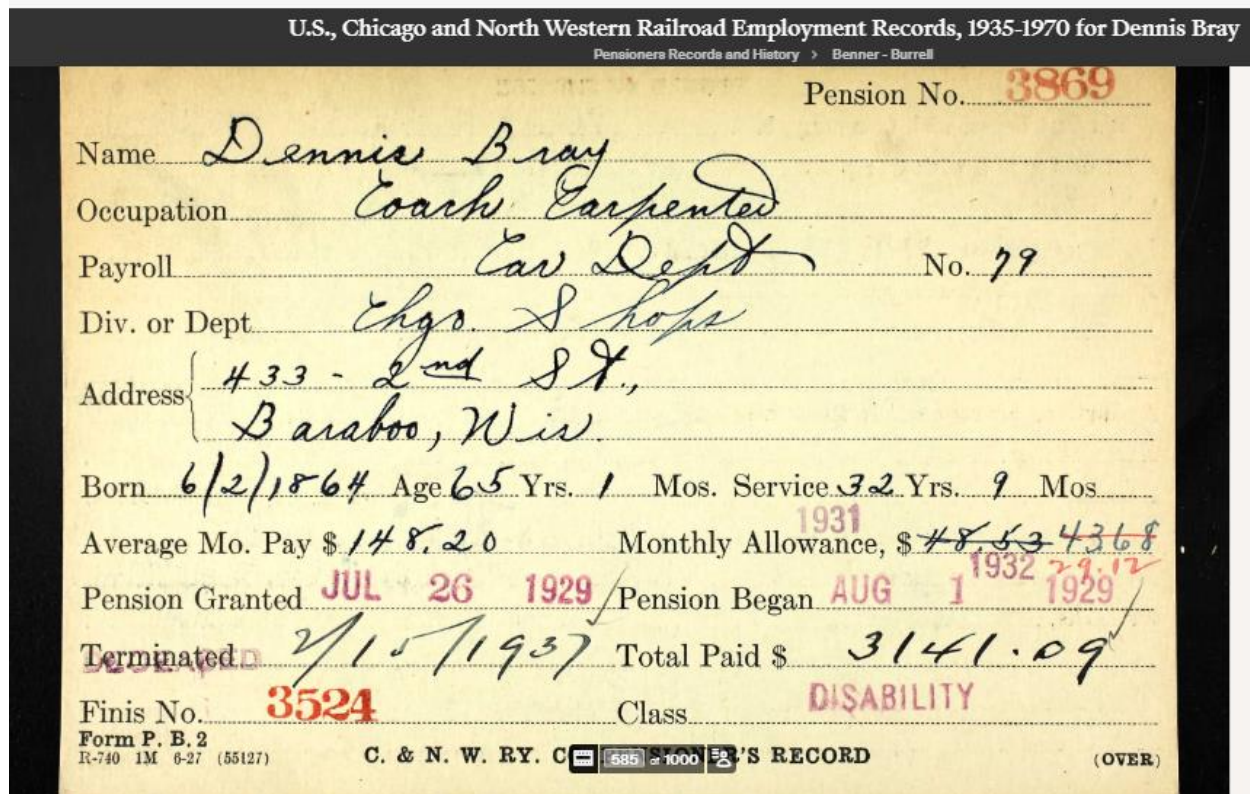 U.S., Chicago and North Western Railroad Employment Records, 1935-1970 for Dennis Bray
Pensioners Records and History > Benner - Burrell
Pension No. 3869
Name Dennis Bray
Occupation Coach Carpenter
Payroll Car Dept No. 79
Div. or Dept Chgo. Shops
Address 433 - 2nd St.,
Baraboo, Wis.
Born 6/2/1864 Age 65 Yrs. 1 Mos. Service 32 Yrs. 9 Mos
1931
Average Mo. Pay $ 148.20 Monthly Allowance, $ 48.53 4368
1932 29.12
Pension Granted JUL 26 1929 Pension Began AUG 1 1929
Terminated 2/15/1937 Total Paid $ 3141.09
DECEASED
Finis No. 3524 Class DISABILITY
Form P. B. 2
R-740 1M 6-27 (55127) C. & N. W. RY. C 585 of 1000 R'S RECORD (OVER)